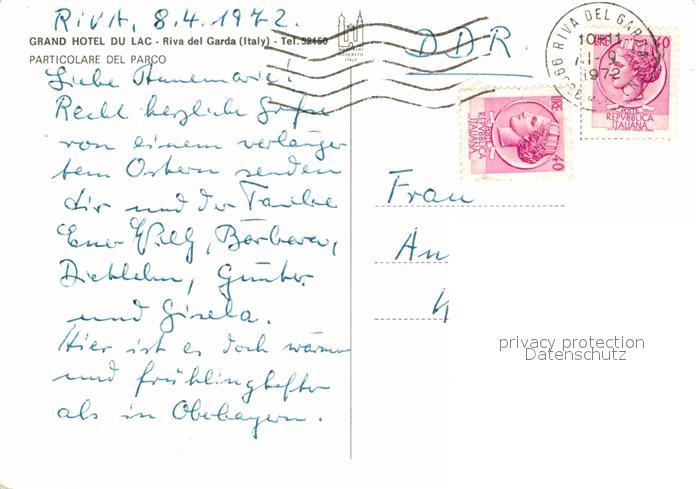 Riva, 8.4.1972.
GRAND HOTEL DU LAC - Riva del Garda (Italy) - Tel. 52150
PARTICOLARE DEL PARCO
Liebe Annemarie!
Recht herzliche Grüße
von einem verlänger
tem Ostern senden
dir und der Familie
Euer Willy, Barbara,
Günter
und Gisela.
Hier ist es doch wärmer
und frühlinghafter
als in Oberbayern.
DDR.
66 RIVA DEL GARDA
10-11
1972
LIRE 40
POSTE
REPVBBLICA
ITALIANA
LIRE 40
POSTE
REPVBBLICA
ITALIANA
Frau
An
privacy protection
Datenschutz